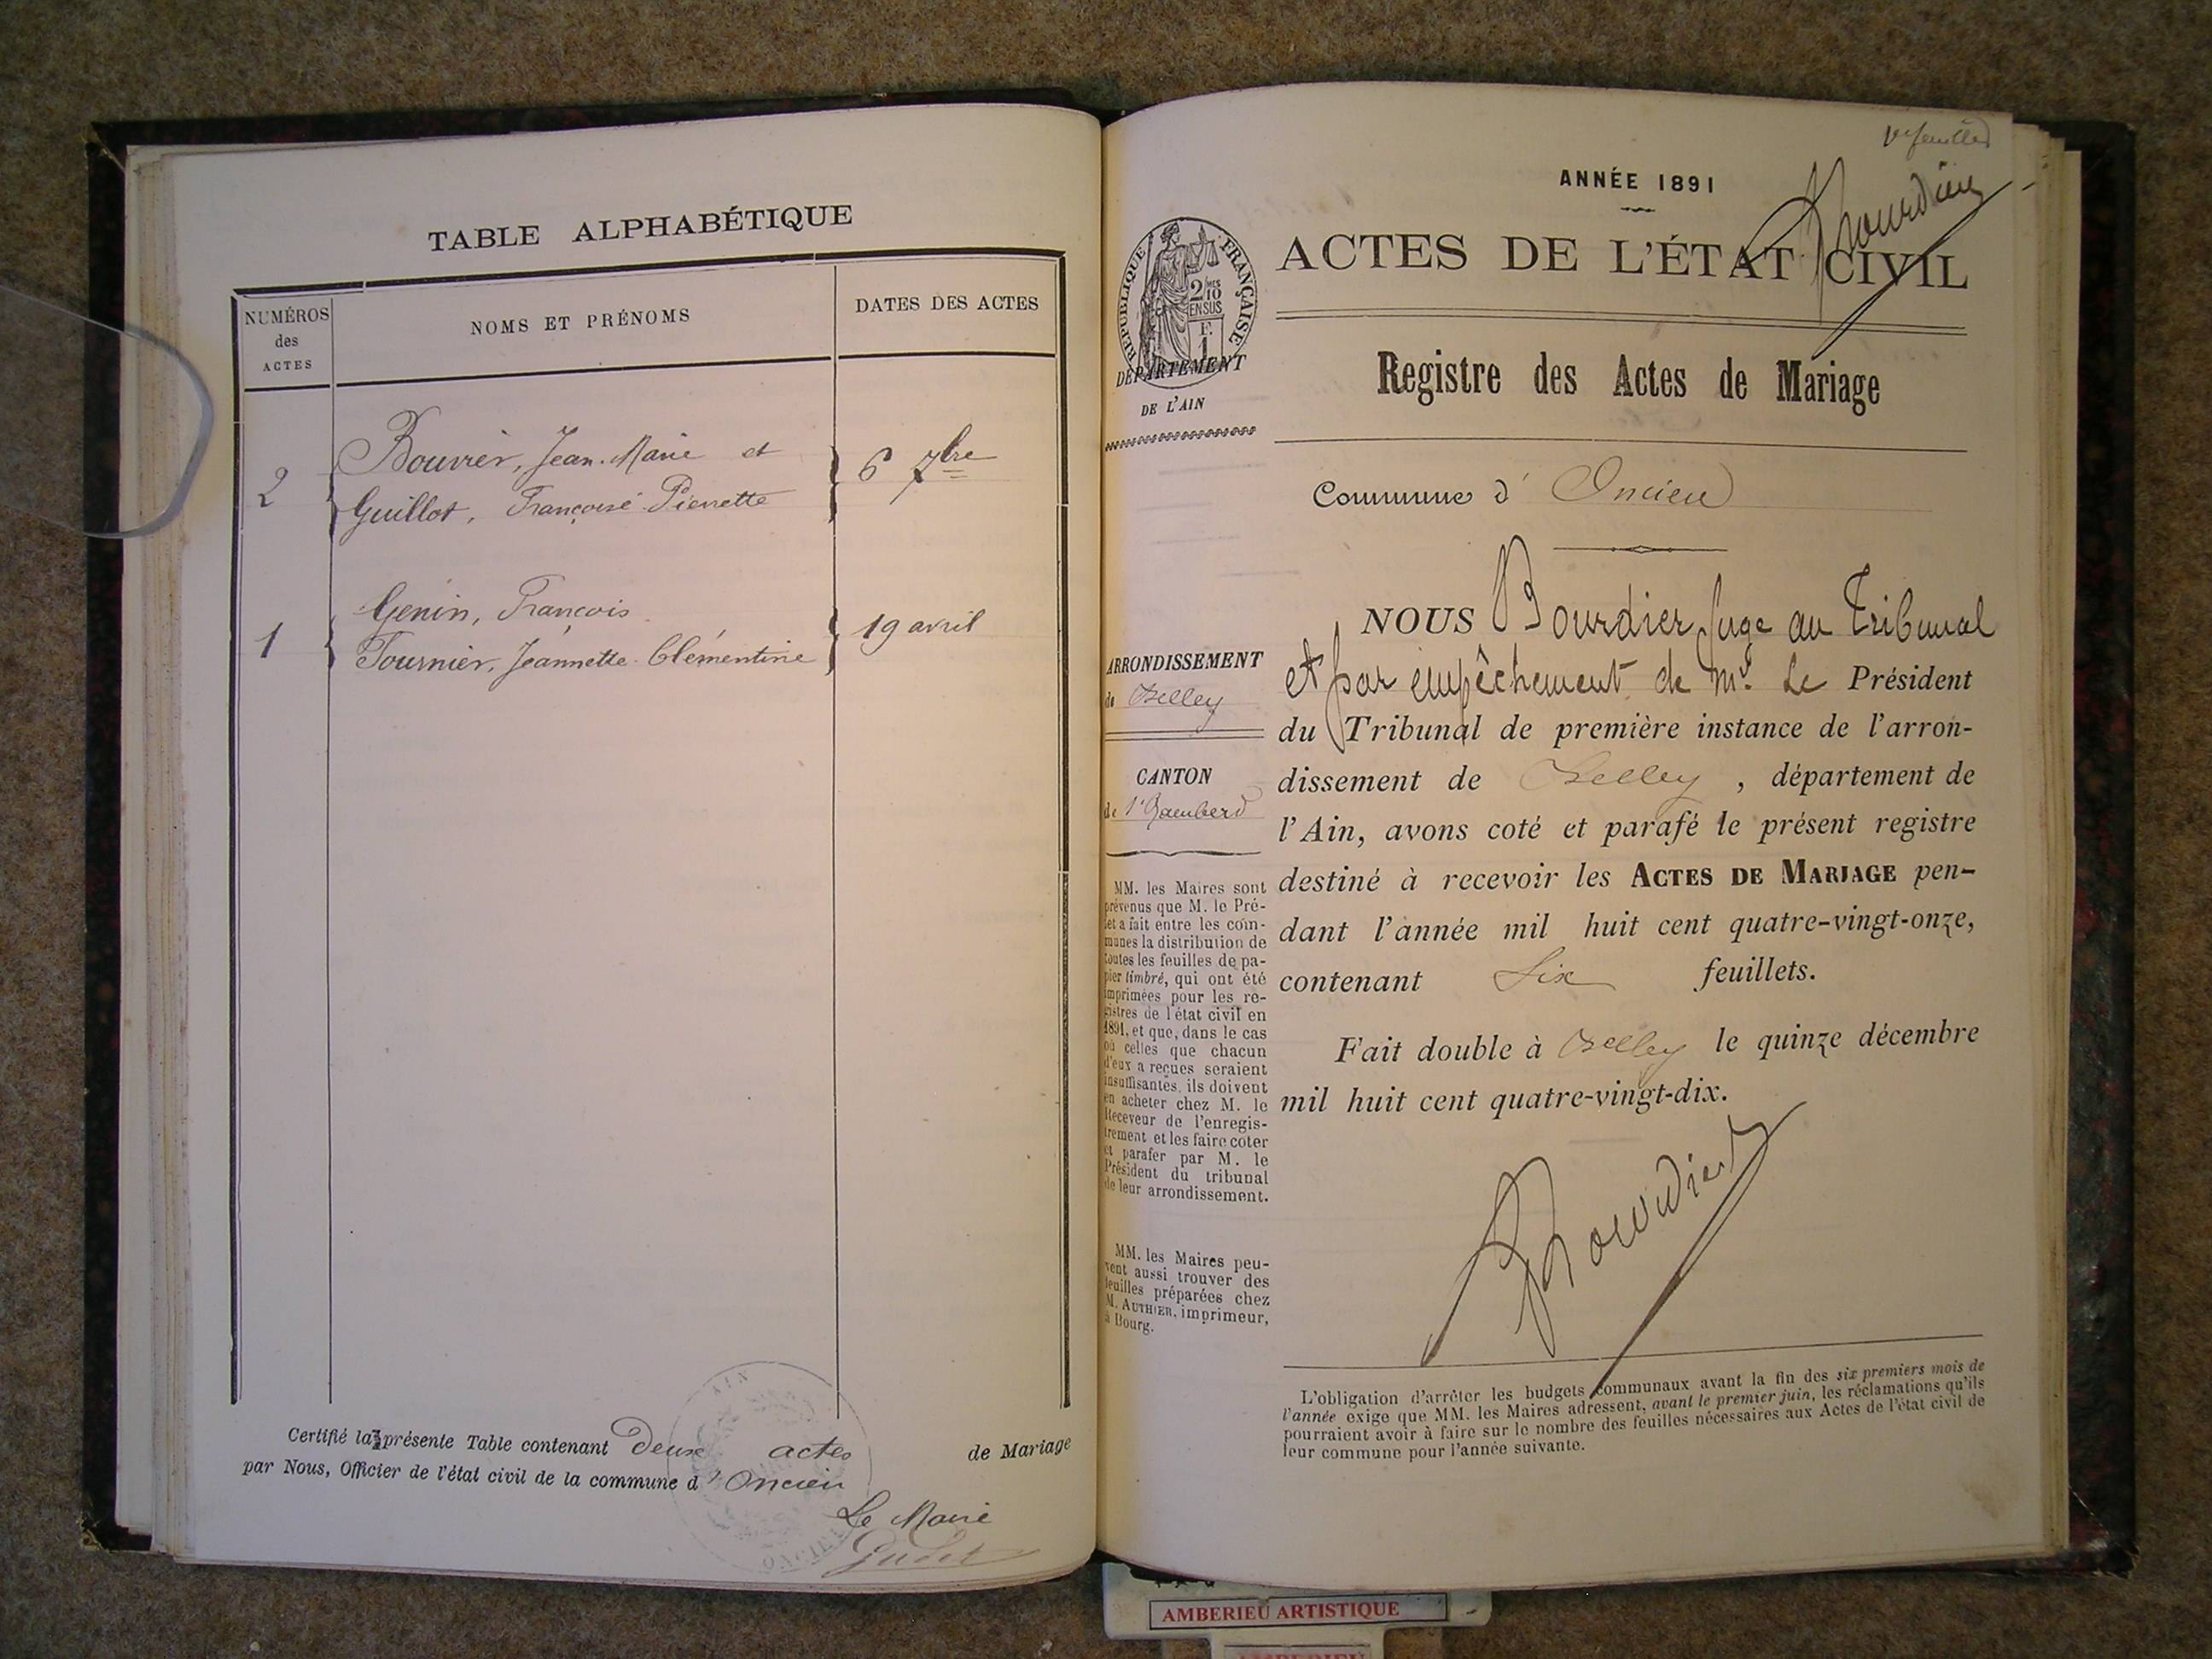 TABLE ALPHABÉTIQUE
NUMÉROS
des
ACTES
NOMS ET PRÉNOMS
DATES DES ACTES
2
Bouvier, Jean-Marie et
Guillot, Françoise Pierrette
6 7bre
1
Genin, François
Tournier, Jeannette-Clémentine
19 avril
Certifié la présente Table contenant Deux actes de Mariage
par Nous, Officier de l'état civil de la commune d'Oncieu
Le Maire
AIN
ONCIEU
1er feuillet
Bourdier
ANNÉE 1891
ACTES DE L'ÉTAT CIVIL
RÉPUBLIQUE FRANÇAISE
2 MES
10
EN SUS
F.
1
DÉPARTEMENT
DE L'AIN
Registre des Actes de Mariage
Commune d' Oncieu
ARRONDISSEMENT
de Belley
CANTON
de St Rambert
MM. les Maires sont
prévenus que M. le Pré-
fet a fait entre les com-
munes la distribution de
toutes les feuilles de pa-
pier timbré, qui ont été
imprimées pour les re-
gistres de l'état civil en
1891, et que, dans le cas
où celles que chacun
d'eux a reçues seraient
insuffisantes, ils doivent
en acheter chez M. le
Receveur de l'enregis-
trement et les faire coter
et parafer par M. le
Président du tribunal
de leur arrondissement.
MM. les Maires peu-
vent aussi trouver des
feuilles préparées chez
M. AUTHIER, imprimeur,
à Bourg.
NOUS Bourdier Juge au Tribunal
et par empêchement de Mr. Le Président
du Tribunal de première instance de l'arron-
dissement de Belley, département de
l'Ain, avons coté et parafé le présent registre
destiné à recevoir les ACTES DE MARIAGE pen-
dant l'année mil huit cent quatre-vingt-onze,
contenant Six feuillets.
Fait double à Belley le quinze décembre
mil huit cent quatre-vingt-dix.
Bourdier
L'obligation d'arrêter les budgets communaux avant la fin des six premiers mois de
l'année exige que MM. les Maires adressent, avant le premier juin, les réclamations qu'ils
pourraient avoir à faire sur le nombre des feuilles nécessaires aux Actes de l'état civil de
leur commune pour l'année suivante.
AMBERIEU ARTISTIQUE
AMBERIEU